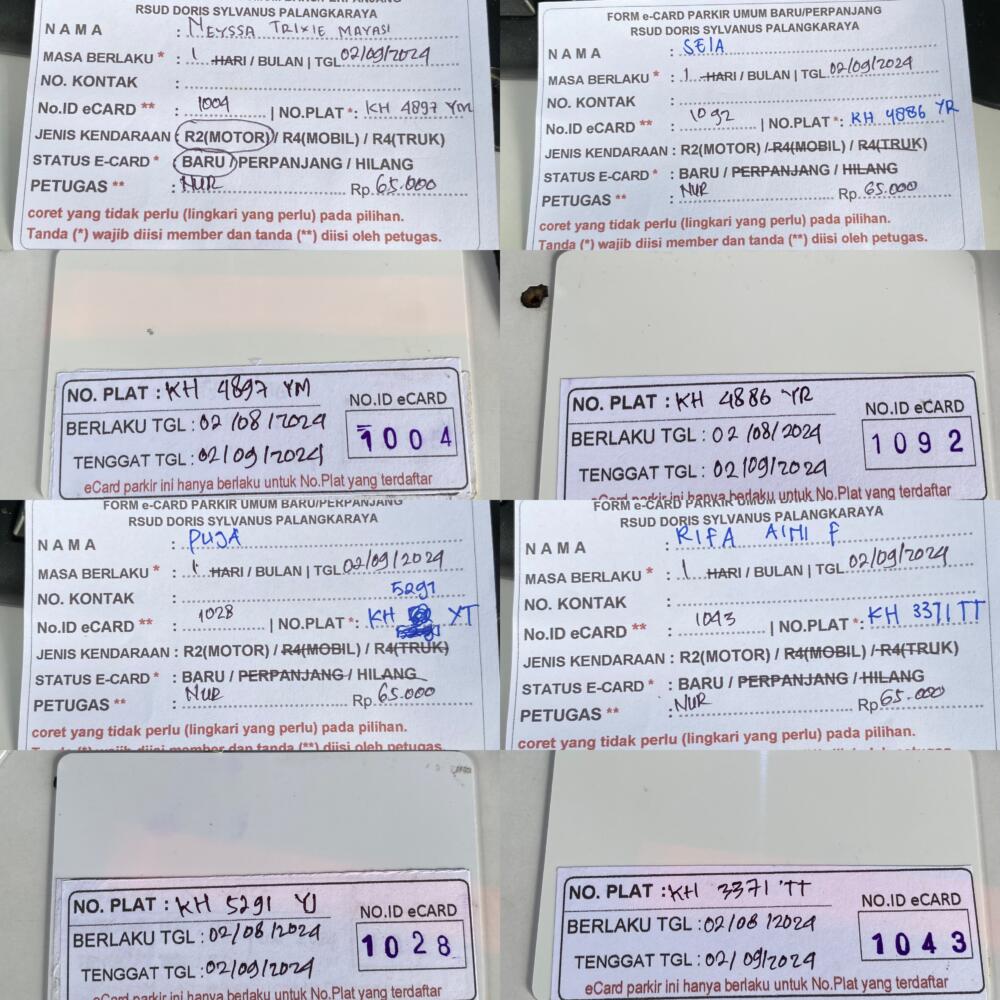 RSUD DORIS SYLVANUS PALANGKARAYA
NAMA : NEYSSA TRIXIE MAYASI
MASA BERLAKU * : 1 HARI / BULAN | TGL 02/09/2024
NO. KONTAK :
No.ID eCARD ** : 1004 | NO.PLAT *: KH 4897 YM
JENIS KENDARAAN : R2(MOTOR) / R4(MOBIL) / R4(TRUK)
STATUS E-CARD * : BARU / PERPANJANG / HILANG
PETUGAS ** : NUR Rp. 65.000
coret yang tidak perlu (lingkari yang perlu) pada pilihan.
Tanda (*) wajib diisi member dan tanda (**) diisi oleh petugas.
FORM e-CARD PARKIR UMUM BARU/PERPANJANG
RSUD DORIS SYLVANUS PALANGKARAYA
NAMA : SEIA
MASA BERLAKU * : 1 HARI / BULAN | TGL 02/09/2024
NO. KONTAK :
No.ID eCARD ** : 1092 | NO.PLAT *: KH 4886 YR
JENIS KENDARAAN : R2(MOTOR) / R4(MOBIL) / R4(TRUK)
STATUS E-CARD * : BARU / PERPANJANG / HILANG
PETUGAS ** : NUR Rp. 65.000
coret yang tidak perlu (lingkari yang perlu) pada pilihan.
Tanda (*) wajib diisi member dan tanda (**) diisi oleh petugas.
NO. PLAT : KH 4897 YM
BERLAKU TGL : 02/08/2024
TENGGAT TGL : 02/09/2024
NO.ID eCARD
1004
eCard parkir ini hanya berlaku untuk No.Plat yang terdaftar
NO. PLAT : KH 4886 YR
BERLAKU TGL : 02/08/2024
TENGGAT TGL : 02/09/2024
NO.ID eCARD
1092
eCard parkir ini hanya berlaku untuk No.Plat yang terdaftar
FORM e-CARD PARKIR UMUM BARU/PERPANJANG
RSUD DORIS SYLVANUS PALANGKARAYA
NAMA : PUJA
MASA BERLAKU * : 1 HARI / BULAN | TGL 02/09/2024
NO. KONTAK :
5291
No.ID eCARD ** : 1028 | NO.PLAT *: KH YT
JENIS KENDARAAN : R2(MOTOR) / R4(MOBIL) / R4(TRUK)
STATUS E-CARD * : BARU / PERPANJANG / HILANG
PETUGAS ** : NUR Rp. 65.000
coret yang tidak perlu (lingkari yang perlu) pada pilihan.
Tanda (*) wajib diisi member dan tanda (**) diisi oleh petugas.
FORM e-CARD PARKIR UMUM BARU/PERPANJANG
RSUD DORIS SYLVANUS PALANGKARAYA
NAMA : RIFA AIMI F
MASA BERLAKU * : 1 HARI / BULAN | TGL 02/09/2024
NO. KONTAK :
No.ID eCARD ** : 1043 | NO.PLAT *: KH 3371 TT
JENIS KENDARAAN : R2(MOTOR) / R4(MOBIL) / R4(TRUK)
STATUS E-CARD * : BARU / PERPANJANG / HILANG
PETUGAS ** : NUR Rp. 65.000
coret yang tidak perlu (lingkari yang perlu) pada pilihan.
NO. PLAT : KH 5291 YJ
BERLAKU TGL : 02/08/2024
TENGGAT TGL : 02/09/2024
NO.ID eCARD
1028
eCard parkir ini hanya berlaku untuk No.Plat yang terdaftar
NO. PLAT : KH 3371 TT
BERLAKU TGL : 02/08/2024
TENGGAT TGL : 02/09/2024
NO.ID eCARD
1043
eCard parkir ini hanya berlaku untuk No.Plat yang terdaftar